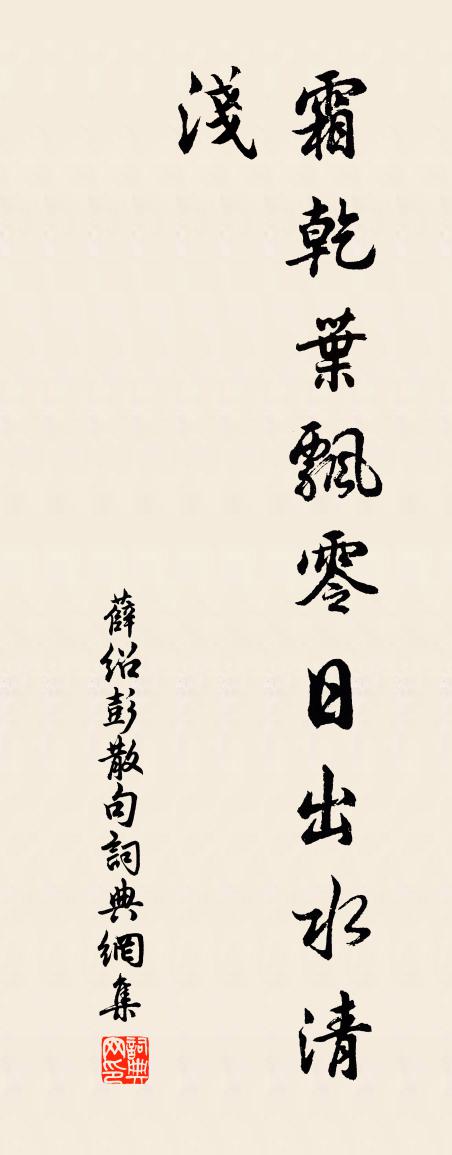 霜乾葉飄零日出水清
淺
薛紹彭散句詞典網集
詞典网印